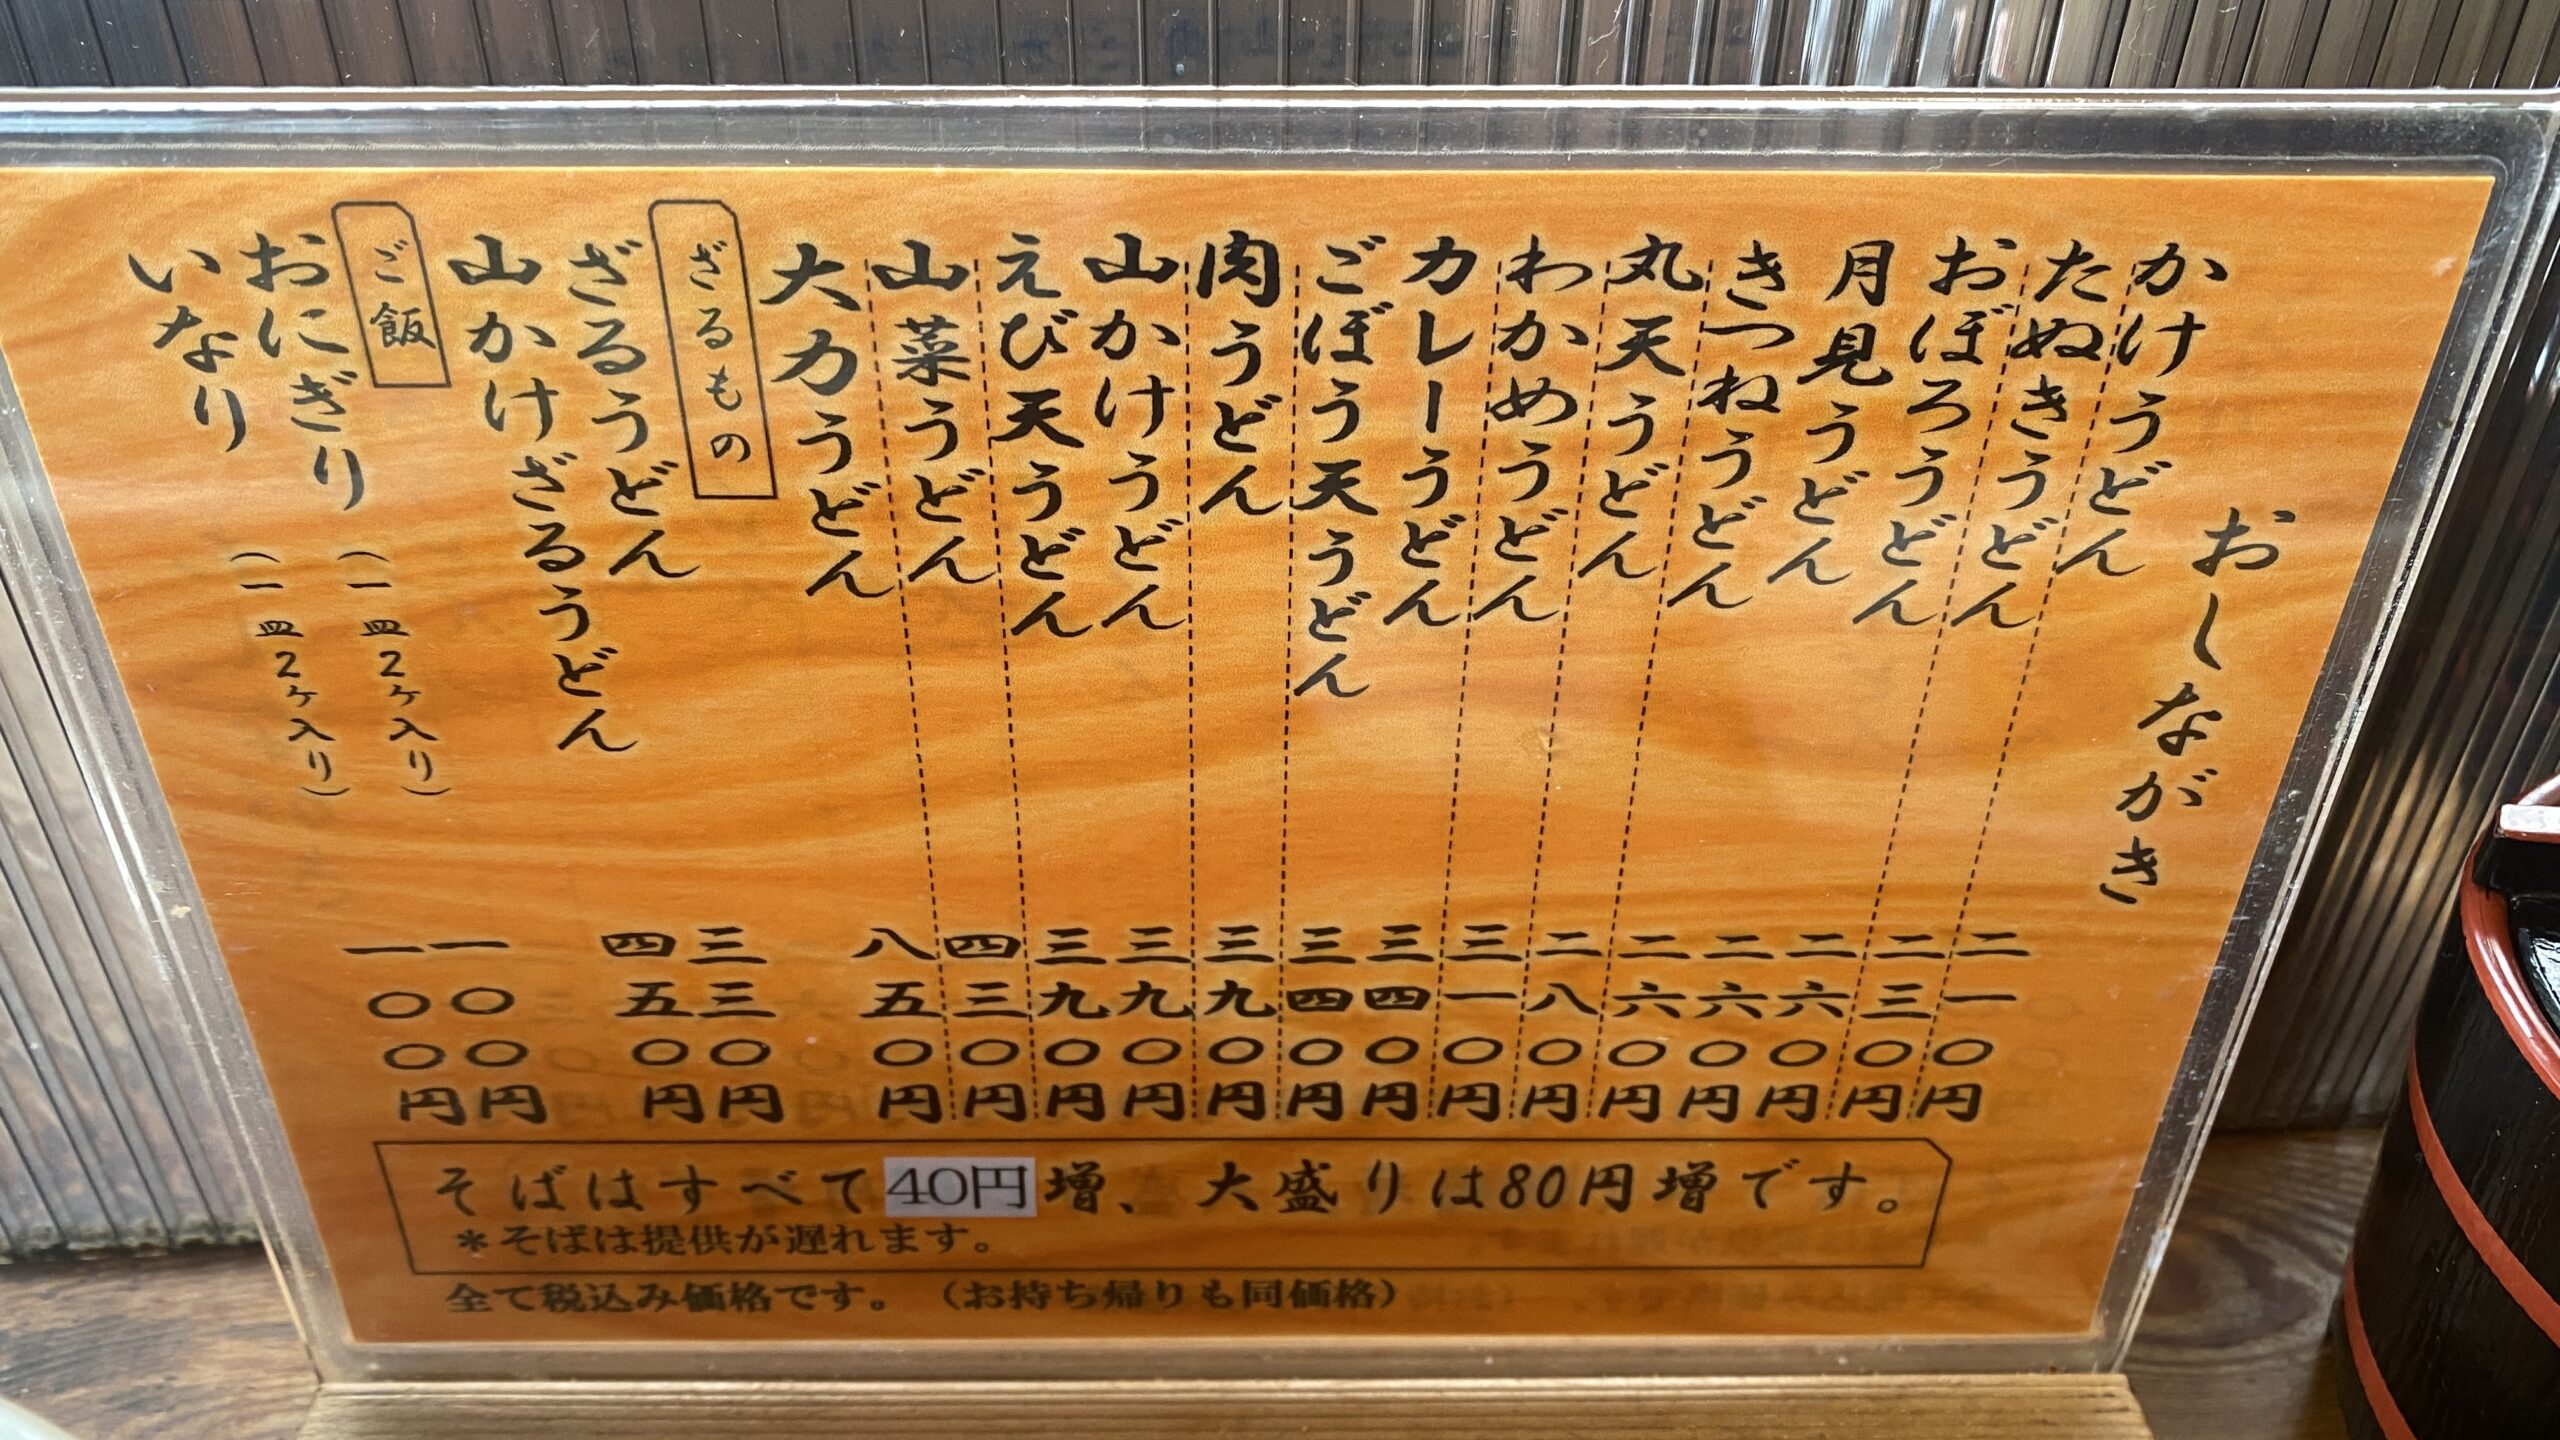 おしながき
かけうどん 二一〇円
たぬきうどん 二三〇円
おぼろうどん 二六〇円
月見うどん 二六〇円
きつねうどん 二六〇円
丸天うどん 二八〇円
わかめうどん 三一〇円
カレーうどん 三四〇円
ごぼう天うどん 三四〇円
肉うどん 三九〇円
山かけうどん 三九〇円
えび天うどん 三九〇円
山菜うどん 四三〇円
大力うどん 八五〇円
ざるもの
ざるうどん 三三〇円
山かけざるうどん 四五〇円
ご飯
おにぎり (一皿2ヶ入り) 一〇〇円
いなり (一皿2ヶ入り) 一〇〇円
そばはすべて40円増、大盛りは80円増です。
*そばは提供が遅れます。
全て税込み価格です。(お持ち帰りも同価格)